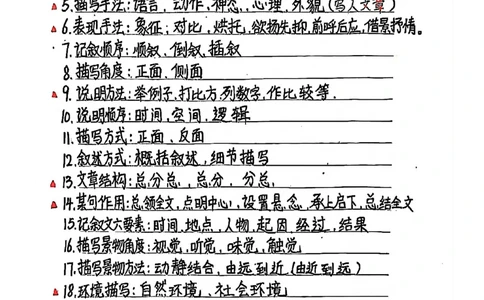 5.描写手法:语言,动作,神态,心理,外貌(写人文章)
6.表现手法:象征,对比,烘托,欲扬先抑,前呼后应,借景抒情。
7.记叙顺序:顺叙、倒叙,插叙
8.描写角度:正面、侧面
9.说明方法:举例子,打比方,列数字,作比较等.
10.说明顺序:时间,空间,逻辑
11.描写方式:正面、反面
12.叙述方式:概括叙述,细节描写
13.文章结构:总分总,总分,分总,
14.某句作用:总领全文,点明中心,设置悬念,承上启下,总结全文
15.记叙文六要素:时间,地点,人物,起因,经过,结果
16.描写景物角度:视觉,听觉,味觉,触觉
17.描写景物方法:动静结合,由远到近(由近到远)
18.环境描写:自然环境、社会环境